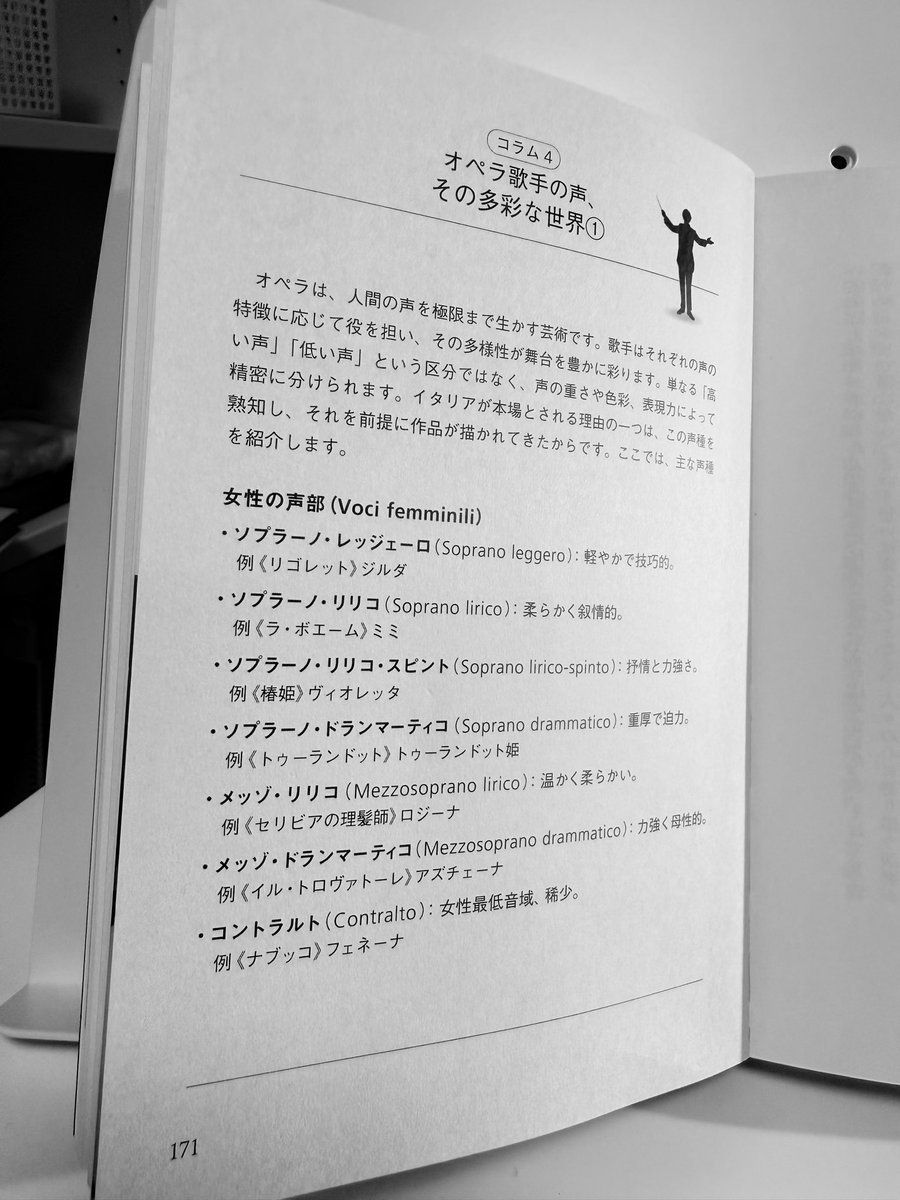 コラム 4
オペラ歌手の声、
その多彩な世界①
オペラは、人間の声を極限まで生かす芸術です。歌手はそれぞれの声の
特徴に応じて役を担い、その多様性が舞台を豊かに彩ります。単なる「高
い声」「低い声」という区分ではなく、声の重さや色彩、表現力によって
精密に分けられます。イタリアが本場とされる理由の一つは、この声種を
熟知し、それを前提に作品が描かれてきたからです。ここでは、主な声種
を紹介します。
女性の声部（Voci femminili）
・ソプラーノ・レッジェーロ（Soprano leggero）：軽やかで技巧的。
例《リゴレット》ジルダ
・ソプラーノ・リリコ（Soprano lirico）：柔らかく叙情的。
例《ラ・ボエーム》ミミ
・ソプラーノ・リリコ・スピント（Soprano lirico-spinto）：抒情と力強さ。
例《椿姫》ヴィオレッタ
・ソプラーノ・ドランマーティコ（Soprano drammatico）：重厚で迫力。
例《トゥーランドット》トゥーランドット姫
・メッゾ・リリコ（Mezzosoprano lirico）：温かく柔らかい。
例《セリビアの理髪師》ロジーナ
・メッゾ・ドランマーティコ（Mezzosoprano drammatico）：力強く母性的。
例《イル・トロヴァトーレ》アズチェーナ
・コントラルト（Contralto）：女性最低音域、稀少。
例《ナブッコ》フェネーナ
171